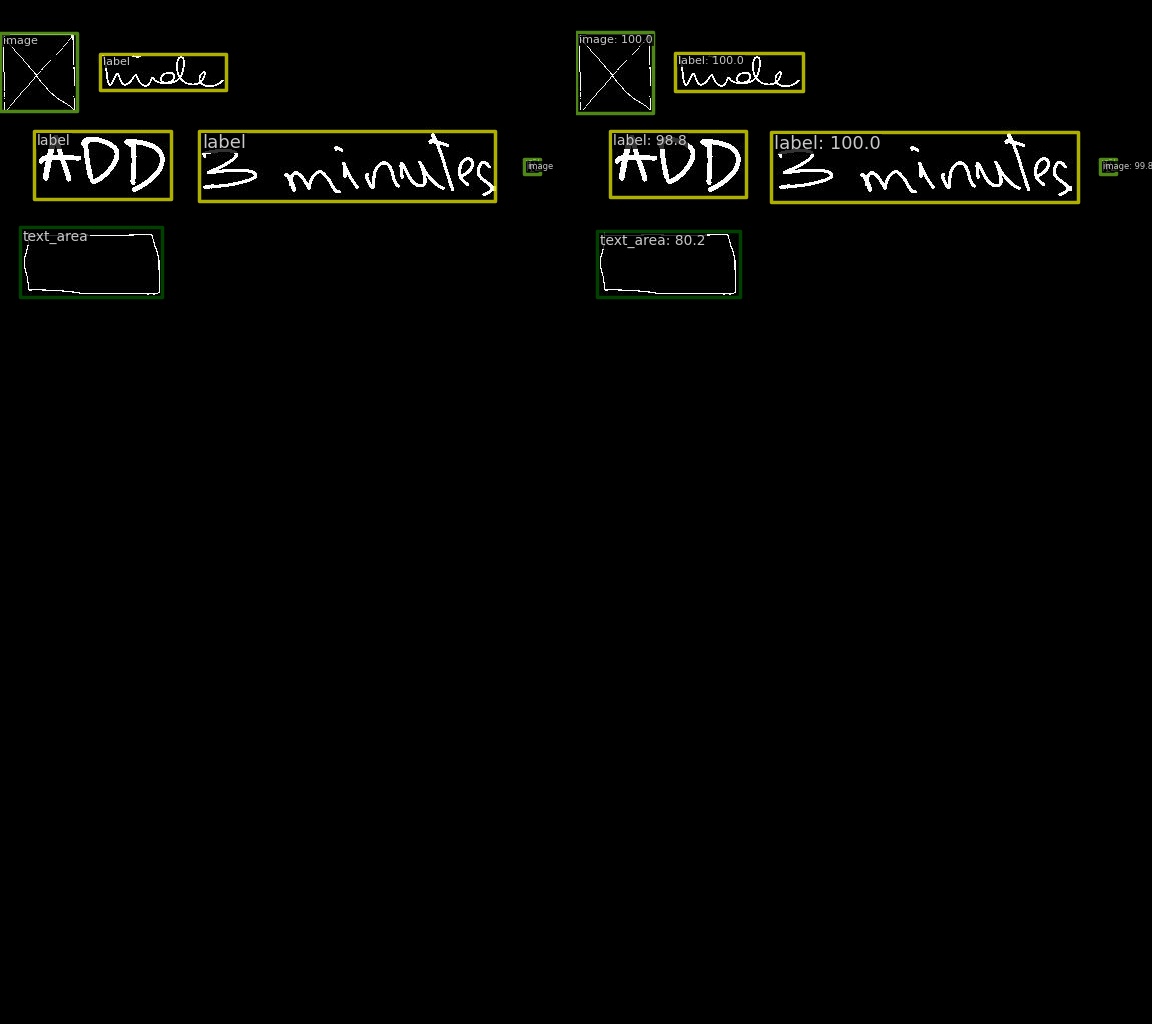 image
label
label
ADD
label
3 minutes
image
text_area
image: 100.0
label: 100.0
label: 98.8
ADD
label: 100.0
3 minutes
image: 99.8
text_area: 80.2